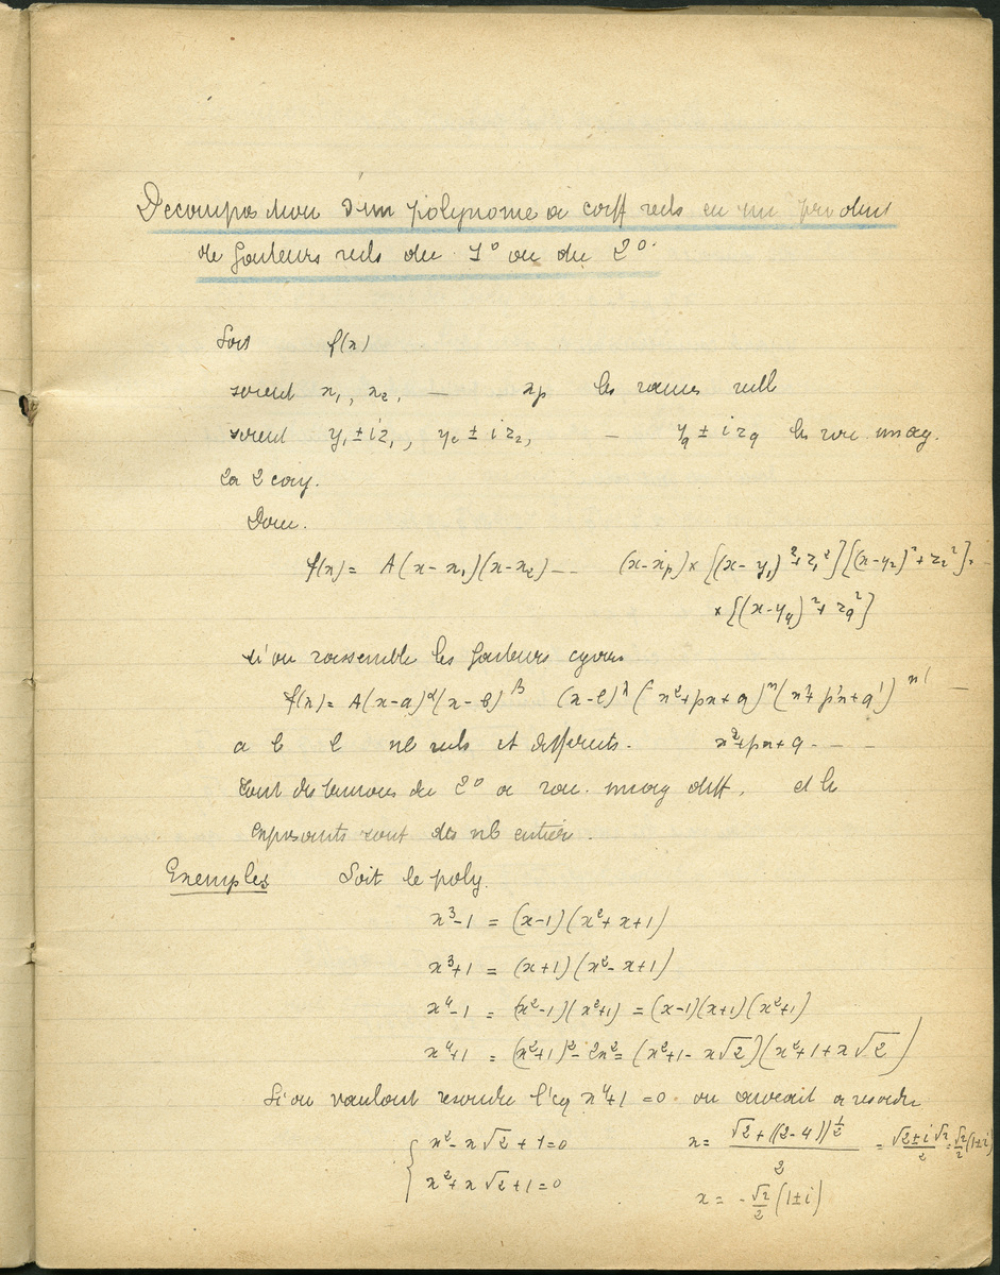 Decomposition d'un polynome a coeff reels en un produit
de facteurs reels du 1° ou du 2°.
Soit f(x)
soient x₁, x₂, — xp les racines reell
soient y₁ ± iz₁, y₂ ± iz₂, — yq ± izq les rac imag.
2 a 2 conj.
Donc.
f(x) = A(x-x₁)(x-x₂)-- (x-xp) × [(x-y₁)²+z₁²][(x-y₂)²+z₂²].
× [(x-yq)²+zq²]
si on rassemble les facteurs egaux
f(x) = A(x-a)^α(x-b)^β (x-l)^λ (x²+px+q)^m(x²+p'x+q')^m' —
a b l nb reels et differents. x²+px+q - - -
sont des trinomes du 2° a rac. imag diff. et les
exposants sont des nb entiers.
Exemples Soit le poly.
x³-1 = (x-1)(x²+x+1)
x³+1 = (x+1)(x²-x+1)
x⁴-1 = (x²-1)(x²+1) = (x-1)(x+1)(x²+1)
x⁴+1 = (x²+1)²-2x² = (x²+1-x√2)(x²+1+x√2)
Si on voulait resoudre l'eq x⁴+1=0 on aurait a resoudre
{ x²-x√2+1=0 x = (√2+((2-4))^½)/2 = (√2±i√2)/2 = √2/2(1±i)
x²+x√2+1=0 x = -√2/2(1±i)